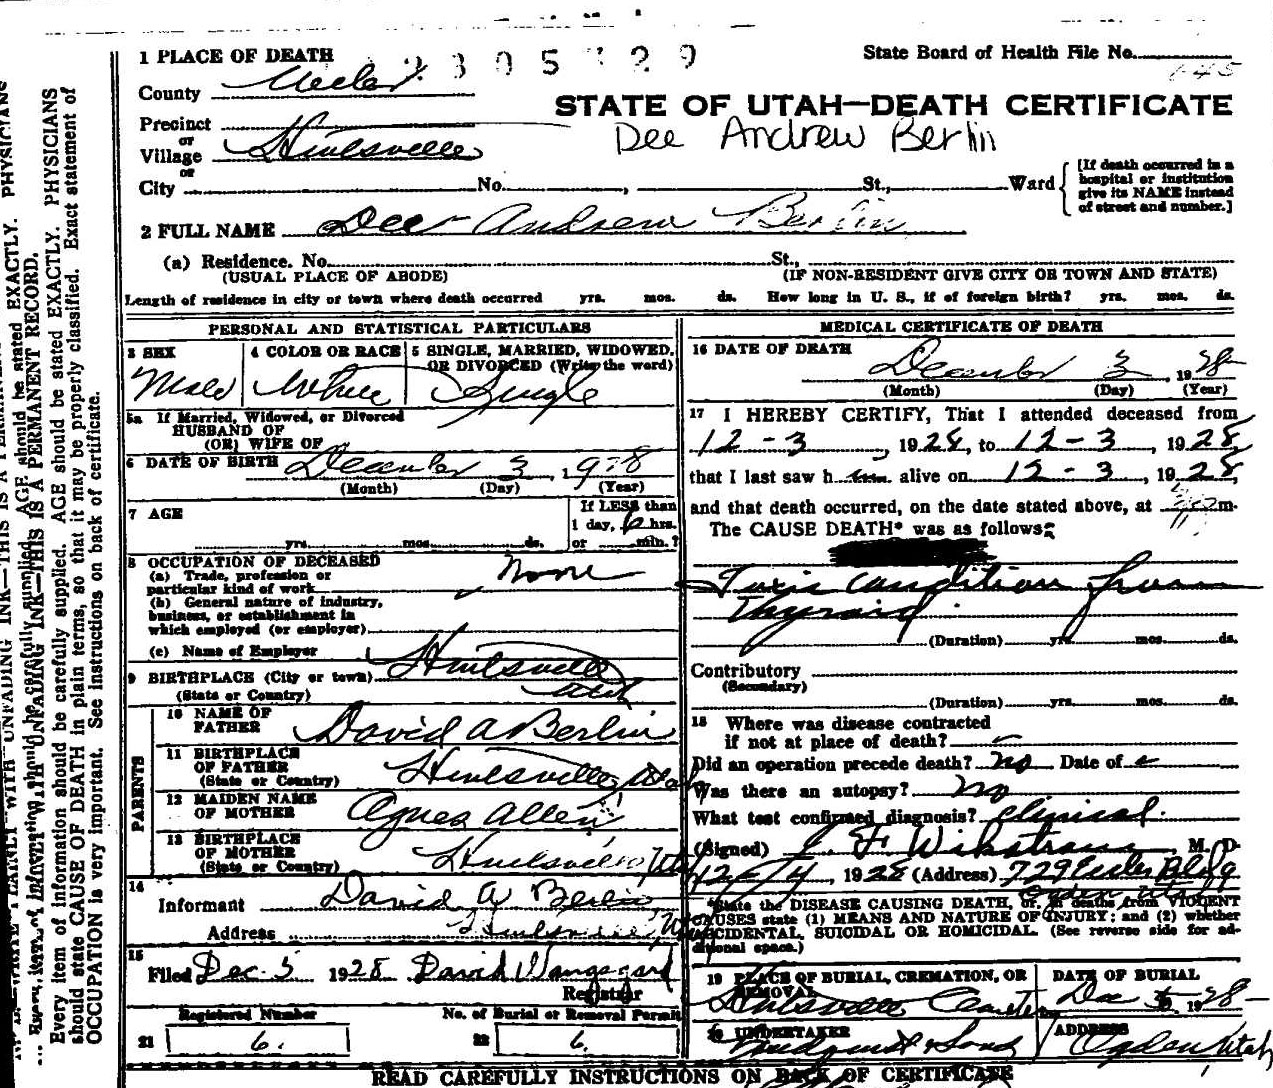 1 PLACE OF DEATH
2305329
State Board of Health File No.
145
County Weber
STATE OF UTAH—DEATH CERTIFICATE
Dee Andrew Berlin
Precinct
or
Village Huntsville
or
City No. , St., Ward
[If death occurred in a
hospital or institution
give its NAME instead
of street and number.]
2 FULL NAME Dee Andrew Berlin
(a) Residence. No. St.,
(USUAL PLACE OF ABODE) (IF NON-RESIDENT GIVE CITY OR TOWN AND STATE)
Length of residence in city or town where death occurred yrs. mos. ds. How long in U. S., if of foreign birth? yrs. mos. ds.
PERSONAL AND STATISTICAL PARTICULARS
3 SEX
Male
4 COLOR OR RACE
White
5 SINGLE, MARRIED, WIDOWED,
OR DIVORCED (Write the word)
Single
5a If Married, Widowed, or Divorced
HUSBAND OF
(OR) WIFE OF
6 DATE OF BIRTH December 3, 1928
(Month) (Day) (Year)
7 AGE
yrs. mos. ds.
If LESS than
1 day, 6 hrs.
or min.?
8 OCCUPATION OF DECEASED
(a) Trade, profession or
particular kind of work None
(b) General nature of industry,
business, or establishment in
which employed (or employer)
(c) Name of Employer
9 BIRTHPLACE (City or town) Huntsville
(State or Country) Utah
PARENTS
10 NAME OF
FATHER David A Berlin
11 BIRTHPLACE
OF FATHER
(State or Country) Huntsville, Utah
12 MAIDEN NAME
OF MOTHER Agnes Allen
13 BIRTHPLACE
OF MOTHER
(State or Country) Huntsville, Utah
14
Informant David A Berlin
Address Huntsville, U
15
Filed Dec. 5 1928 David Wangsgard
Registrar
Registered Number
21 6.
No. of Burial or Removal Permit
22 6.
MEDICAL CERTIFICATE OF DEATH
16 DATE OF DEATH
December 3, 1928
(Month) (Day) (Year)
17 I HEREBY CERTIFY, That I attended deceased from
12-3, 1928, to 12-3, 1928,
that I last saw him alive on 12-3, 1928,
and that death occurred, on the date stated above, at m.
The CAUSE DEATH* was as follows:
Toxic condition from
Thyroid
(Duration) yrs. mos. ds.
Contributory
(Secondary)
(Duration) yrs. mos. ds.
18 Where was disease contracted
if not at place of death?
Did an operation precede death? no Date of
Was there an autopsy? no
What test confirmed diagnosis? clinical
(Signed) J. F. Wikstrom, M. D.
12-4, 1928 (Address) 729 Eccles Bldg
Ogden Utah
*State the DISEASE CAUSING DEATH, or, in deaths from VIOLENT
CAUSES state (1) MEANS AND NATURE OF INJURY; and (2) whether
ACCIDENTAL, SUICIDAL OR HOMICIDAL. (See reverse side for ad-
ditional space.)
19 PLACE OF BURIAL, CREMATION, OR
REMOVAL
Huntsville Cemetery
DATE OF BURIAL
Dec 1928
20 UNDERTAKER
& Sons
ADDRESS
Ogden, Utah
READ CAREFULLY INSTRUCTIONS ON BACK OF CERTIFICATE
Every item of information should be carefully supplied. AGE should be stated EXACTLY. PHYSICIANS
should state CAUSE OF DEATH in plain terms, so that it may be properly classified. Exact statement of
OCCUPATION is very important. See instructions on back of certificate.